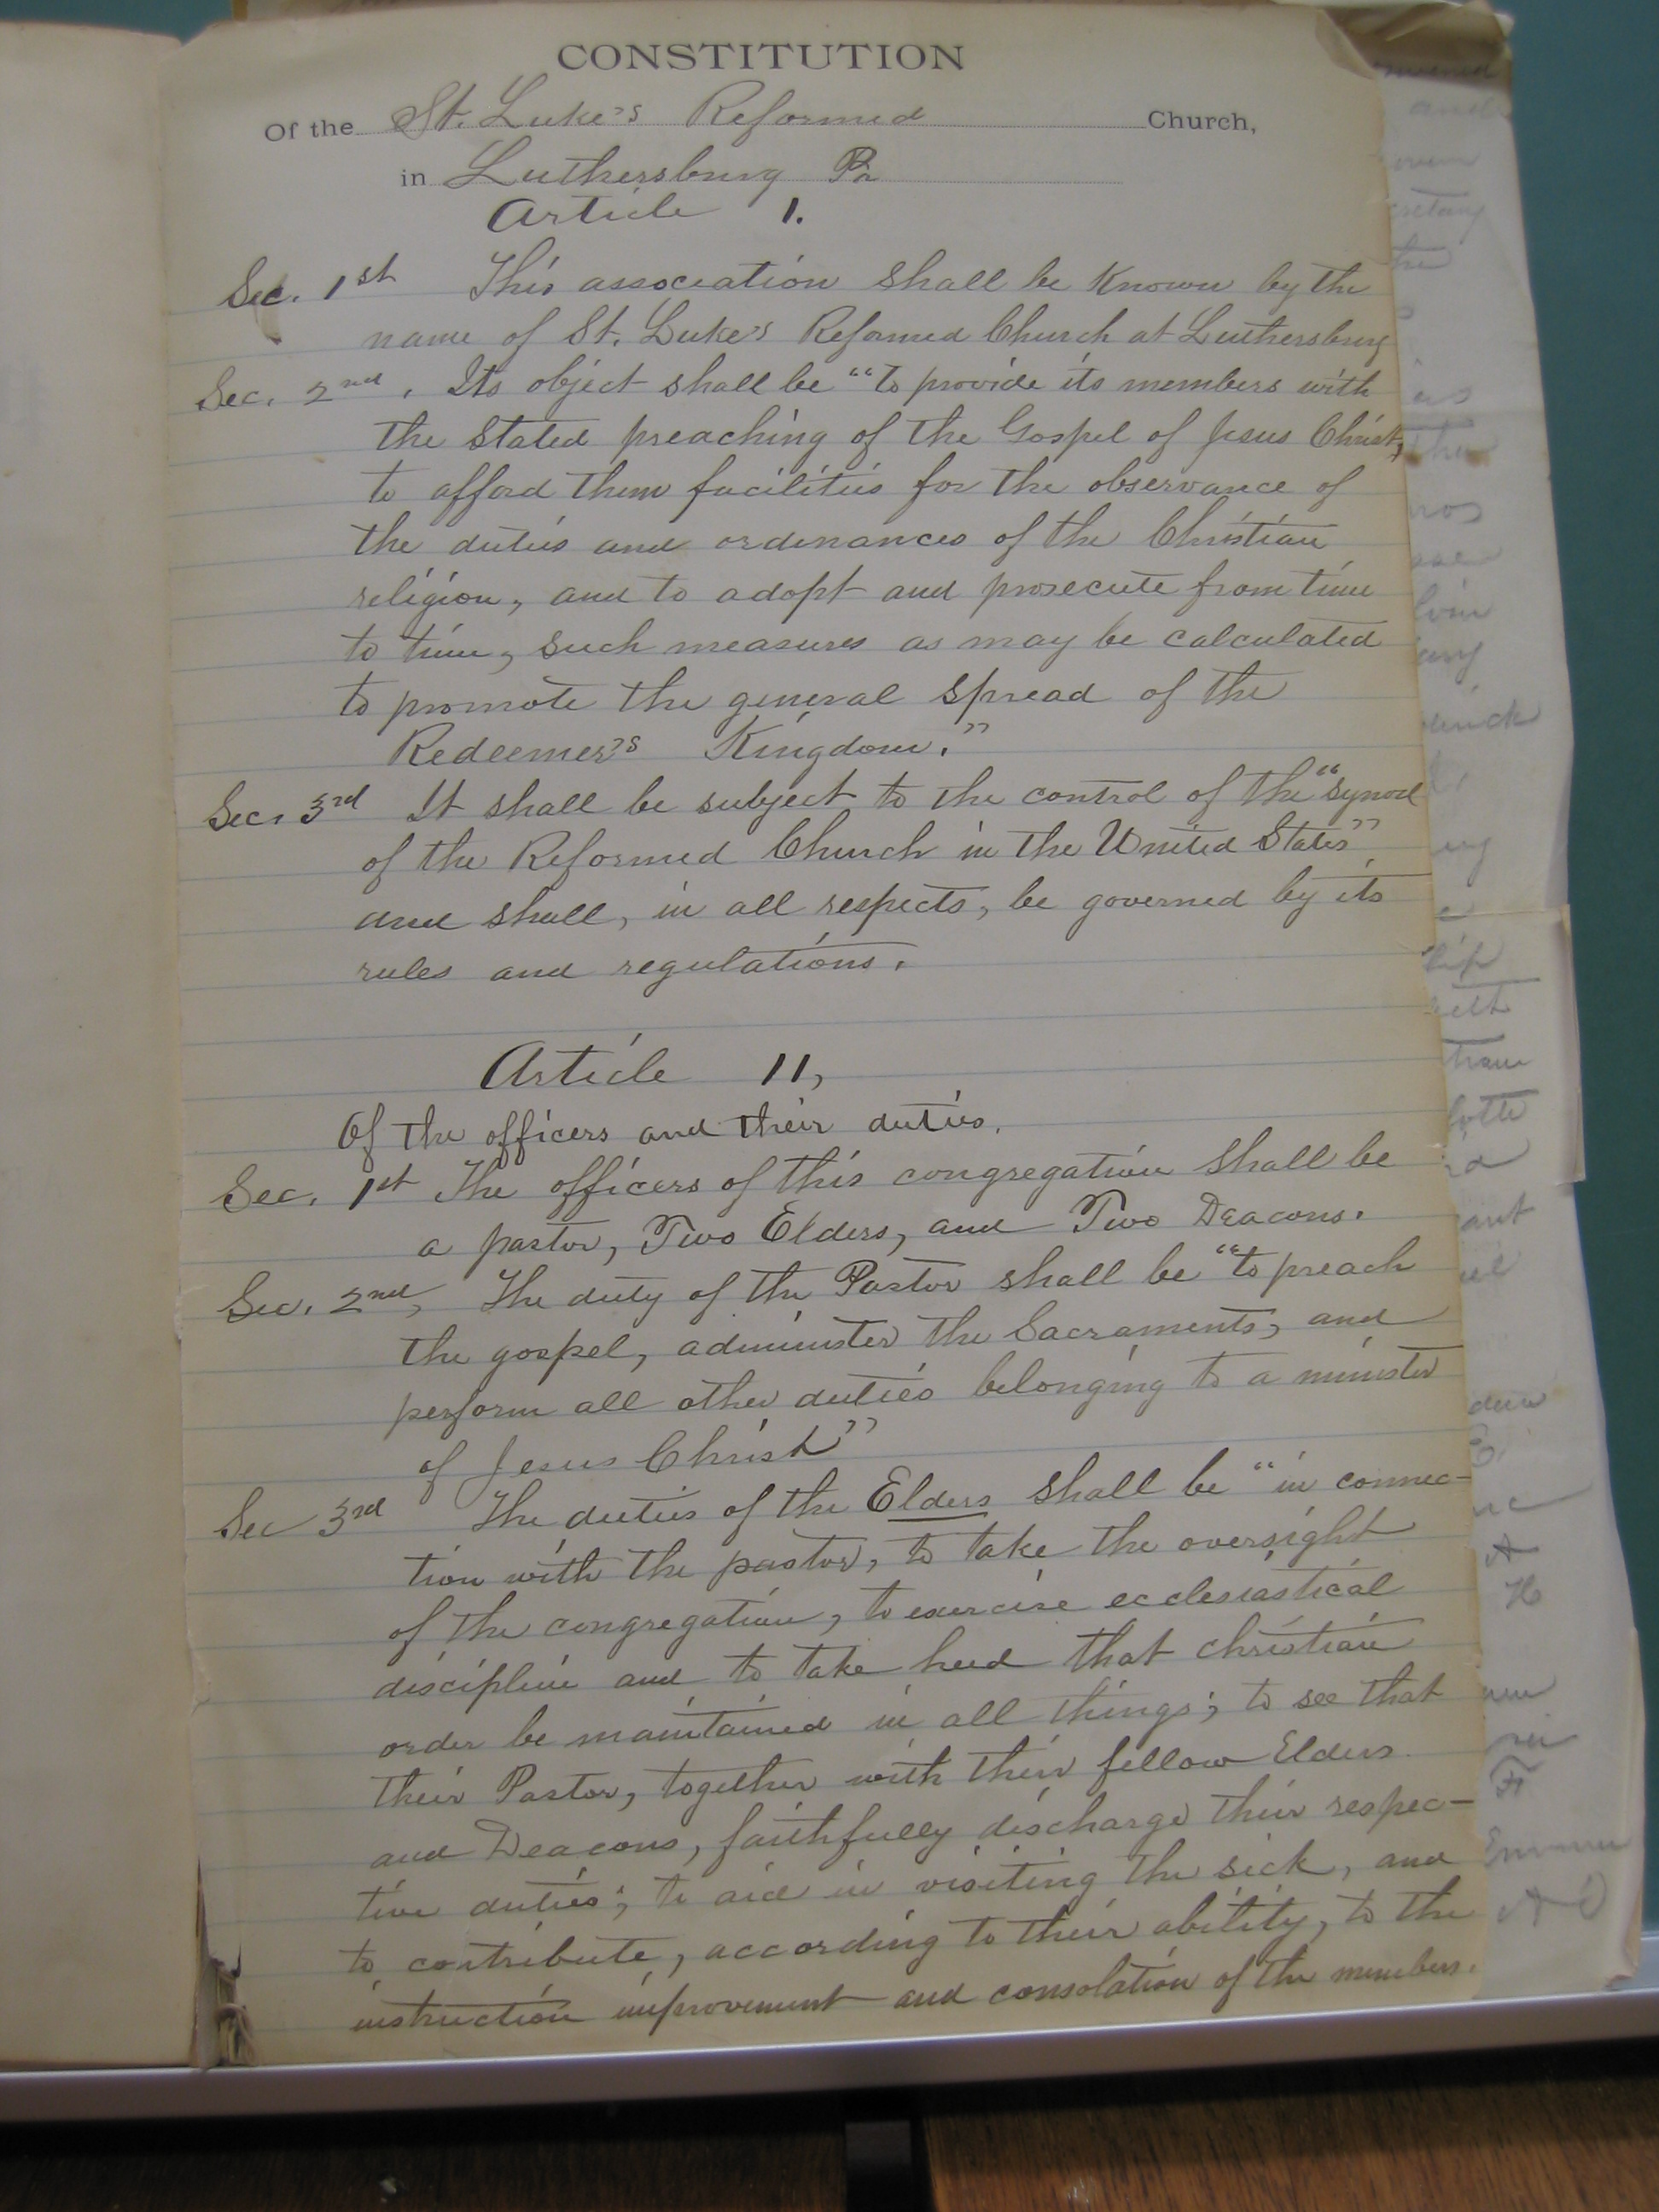 CONSTITUTION
Of the St. Luke's Reformed Church,
in Luthersburg Pa
Article 1.
Sec. 1st This association shall be Known by the
name of St. Luke's Reformed Church at Luthersburg
Sec. 2nd. Its object shall be "to provide its members with
the stated preaching of the Gospel of Jesus Christ,
to afford them facilities for the observance of
the duties and ordinances of the Christian
religion, and to adopt and prosecute from time
to time, such measures as may be calculated
to promote the general spread of the
Redeemer's Kingdom."
Sec. 3rd It shall be subject to the control of the "Synod
of the Reformed Church in the United States"
and shall, in all respects, be governed by its
rules and regulations.
Article 11,
Of the officers and their duties.
Sec. 1st The officers of this congregation shall be
a pastor, Two Elders, and Two Deacons.
Sec. 2nd, The duty of the Pastor shall be "to preach
the gospel, administer the Sacraments, and
perform all other duties belonging to a minister
of Jesus Christ"
Sec 3rd The duties of the Elders shall be "in connec-
tion with the pastor, to take the oversight
of the congregation, to exercise ecclesiastical
discipline and to take heed that christian
order be maintained in all things; to see that
their Pastor, together with their fellow Elders
and Deacons, faithfully discharge their respec-
tive duties; to aid in visiting the sick, and
to contribute, according to their ability, to the
instruction improvement and consolation of the members.